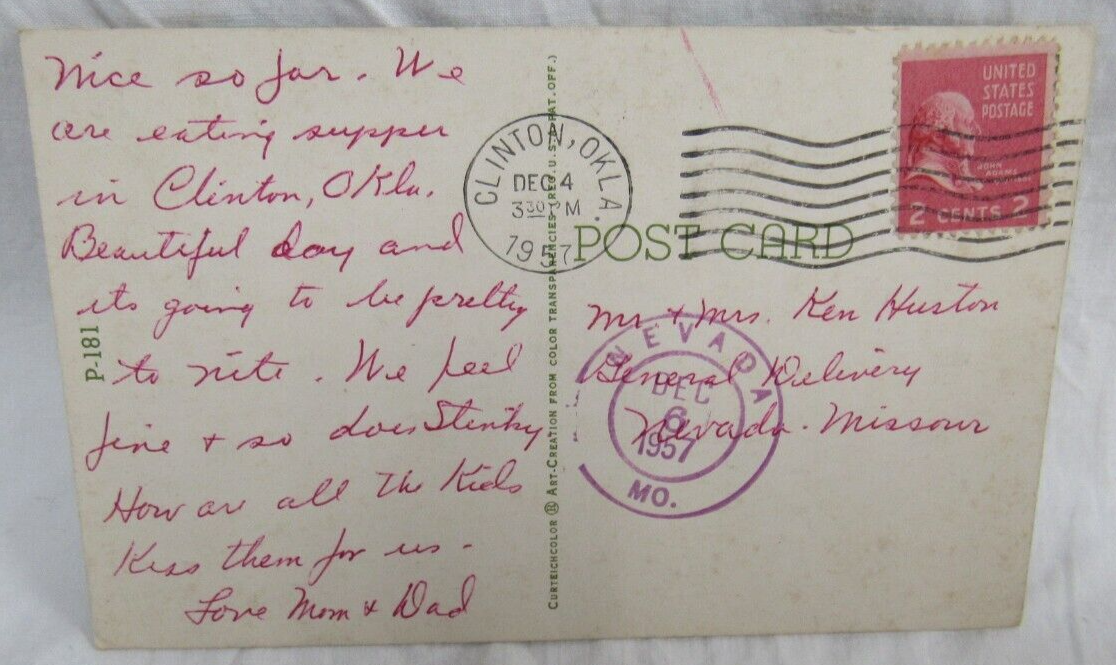 Nice so far. We
are eating supper
in Clinton, Okla.
Beautiful day and
its going to be pretty
to nite. We feel
fine + so does Stinky
How are all the Kids
Kiss them for us-
Love Mom & Dad
P-181
CURTEICHCOLOR ® ART-CREATION FROM COLOR TRANSPARENCIES (REG. U.S.A. PAT. OFF.)
CLINTON, OKLA.
DEC 4
3 30 PM
1957
POST CARD
UNITED
STATES
POSTAGE
JOHN
ADAMS
2 CENTS 2
Mr. + Mrs. Ken Huston
General Delivery
Nevada. Missouri
NEVADA
DEC
6
1957
MO.